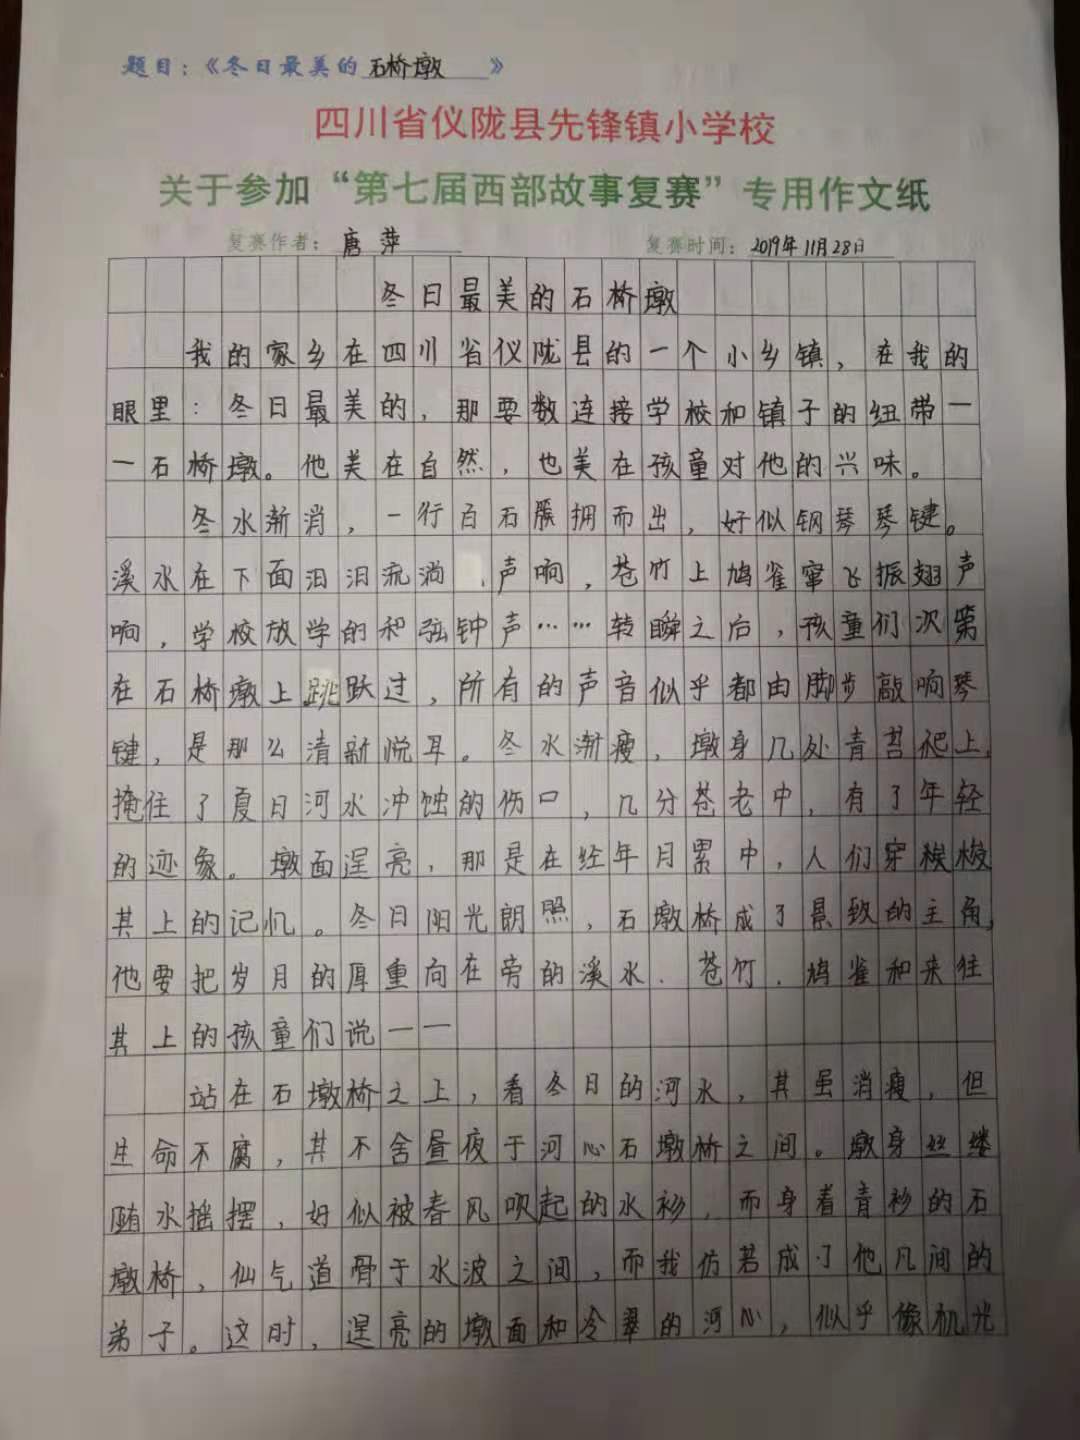 题目：《冬日最美的石桥墩》
四川省仪陇县先锋镇小学校
关于参加“第七届西部故事复赛”专用作文纸
复赛作者：唐萍 复赛时间：2019年11月28日
冬日最美的石桥墩
我的家乡在四川省仪陇县的一个小乡镇，在我的
眼里：冬日最美的，那要数连接学校和镇子的纽带—
—石桥墩。他美在自然，也美在孩童对他的兴味。
冬水渐消，一行百石簇拥而出，好似钢琴琴键。
溪水在下面汩汩流淌、声响，苍竹上鸠雀窜飞振翅声
响，学校放学的和弦钟声……转瞬之后，孩童们次第
在石桥墩上跳跃过，所有的声音似乎都由脚步敲响琴
键，是那么清新悦耳。冬水渐瘦，墩身几处青苔爬上，
掩住了夏日河水冲蚀的伤口，几分苍老中，有了年轻
的迹象。墩面逞亮，那是在经年月累中，人们穿梭
其上的记忆。冬日阳光朗照，石墩桥成了景致的主角，
他要把岁月的厚重向在旁的溪水、苍竹、鸠雀和来往
其上的孩童们说——
站在石墩桥之上，看冬日的河水，其虽消瘦，但
生命不腐，其不舍昼夜于河心石墩桥之间。墩身丝缕
随水摇摆，好似被春风吹起的水衫，而身着青衫的石
墩桥，仙气道骨于水波之间，而我仿若成了他凡间的
弟子。这时，逞亮的墩面和冷翠的河心，似乎像机光